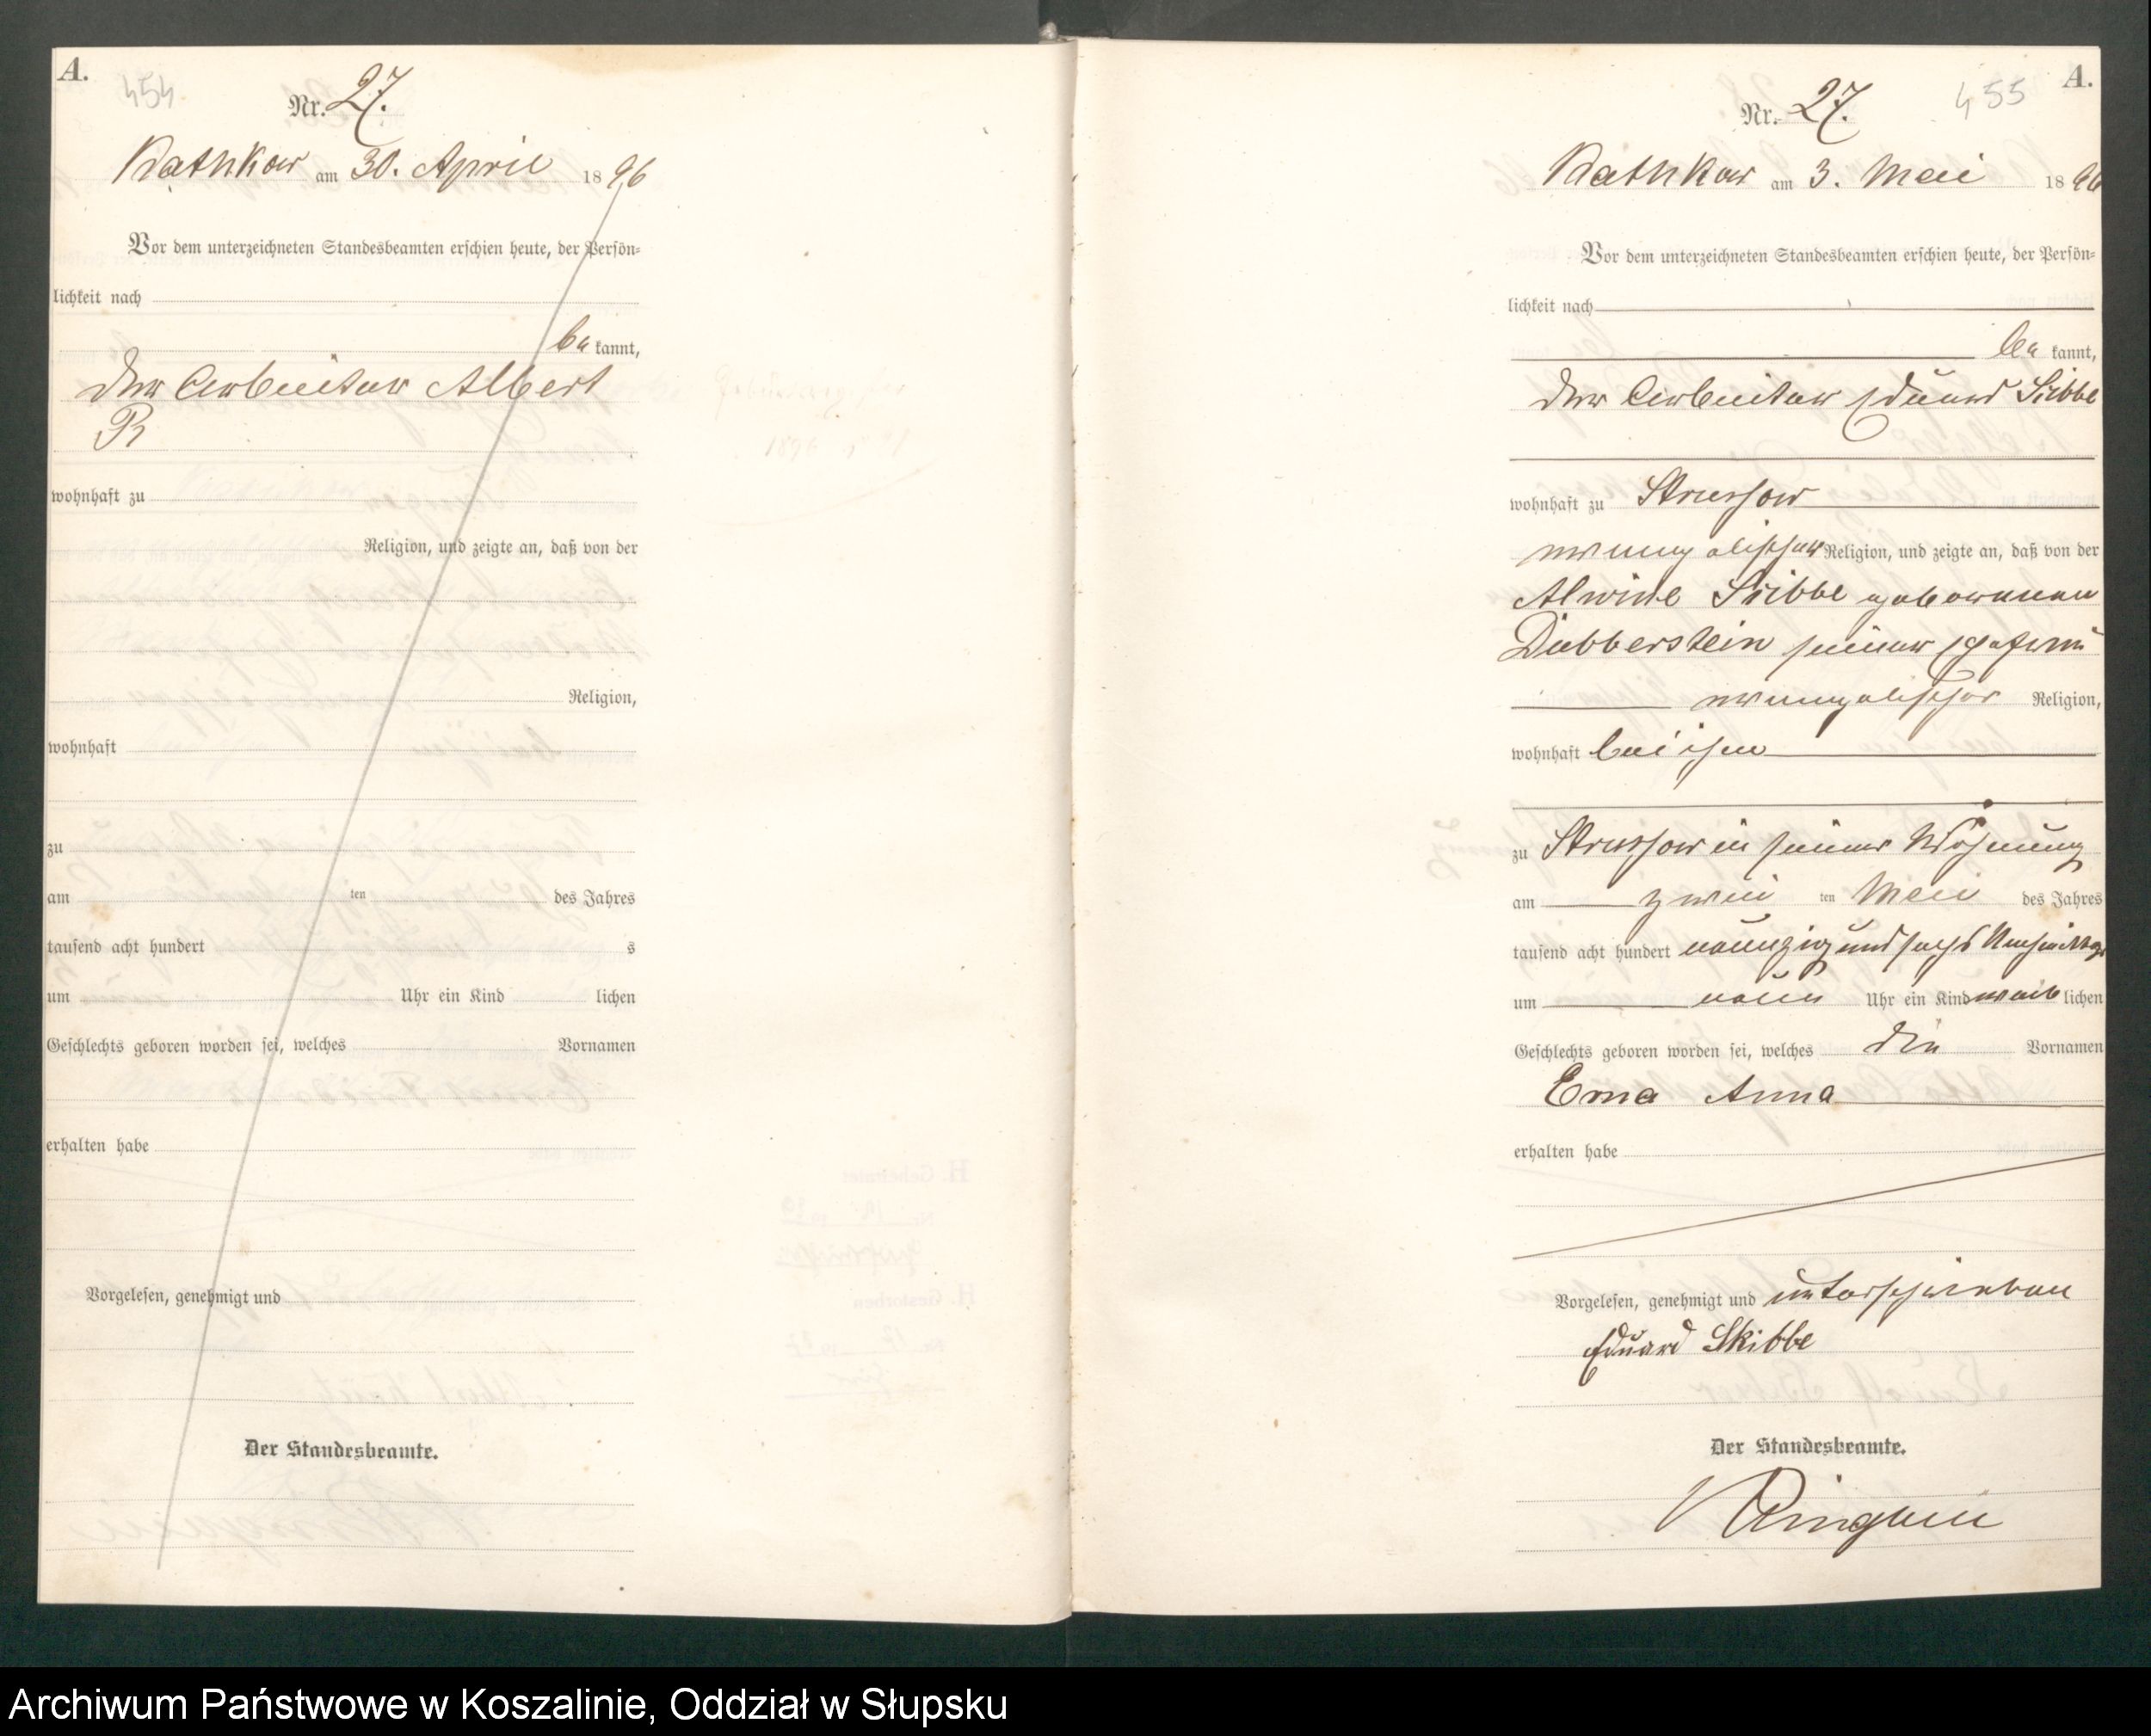 A.
454
Nr. 27.
Rathkow am 30. April 1896
Vor dem unterzeichneten Standesbeamten erschien heute, der Persön-
lichkeit nach
be kannt,
der Arbeiter Albert
R
wohnhaft zu
Religion, und zeigte an, daß von der
Religion,
wohnhaft
zu
am ten des Jahres
tausend acht hundert s
um Uhr ein Kind lichen
Geschlechts geboren worden sei, welches Vornamen
erhalten habe
Vorgelesen, genehmigt und
Der Standesbeamte.
455
A.
Nr. 27.
Rathkow am 3. Mai 1896
Vor dem unterzeichneten Standesbeamten erschien heute, der Persön-
lichkeit nach
be kannt,
der Arbeiter Eduard Skibbe
wohnhaft zu Strussow
evangelischer Religion, und zeigte an, daß von der
Alwine Skibbe geborenen
Dubberstein seiner Ehefrau
evangelischer Religion,
wohnhaft bei ihm
zu Strussow in seiner Wohnung
am zwei ten Mai des Jahres
tausend acht hundert neunzig und sechs Nachmittags
um neun Uhr ein Kind weib lichen
Geschlechts geboren worden sei, welches die Vornamen
Erna Anna
erhalten habe
Vorgelesen, genehmigt und unterschrieben
Eduard Skibbe
Der Standesbeamte.
Archiwum Państwowe w Koszalinie, Oddział w Słupsku